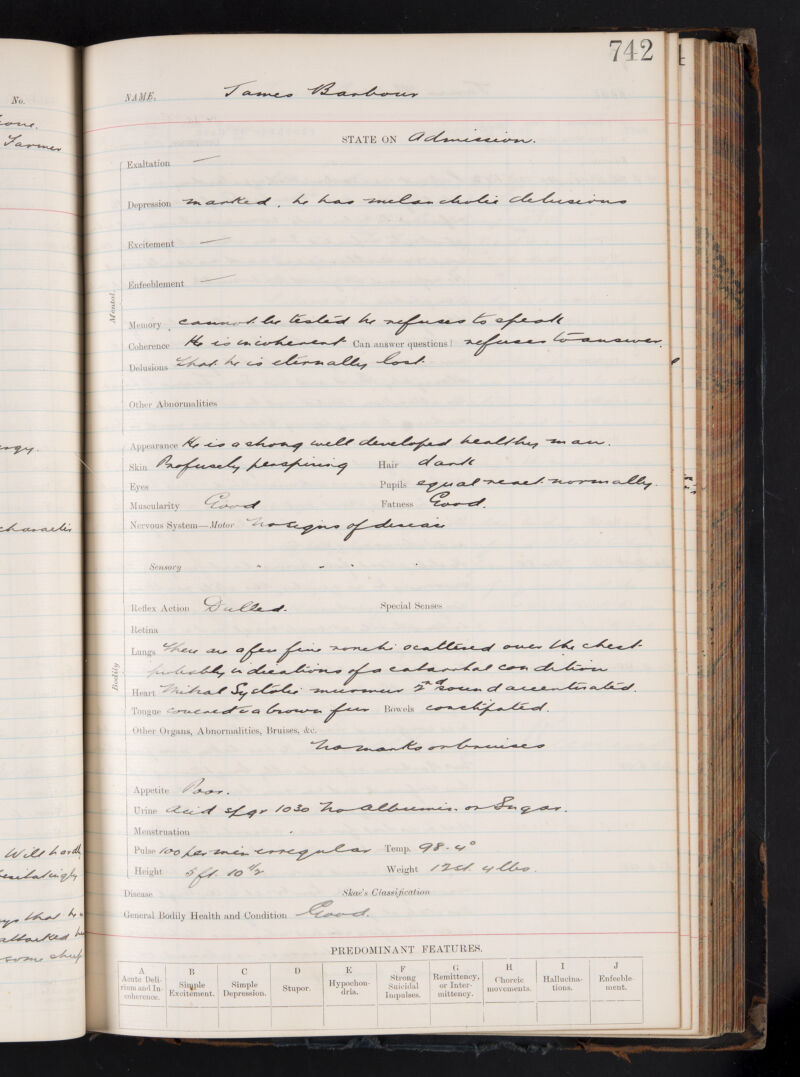 No.
Farmer
742
NAME. James Barbour
STATE ON Admission.
Exaltation —
Depression marked, he has melancholic delusions
Excitement —
Enfeeblement —
Mental.
Memory, cannot be tested he refuses to speak
Coherence He is incoherent Can answer questions? refuses to answer.
Delusions that he is eternally lost
Other Abnormalities
Appearance He is a strong well developed healthy man.
Skin Profusely perspiring Hair dark
Eyes Pupils equal react normally.
Muscularity Good Fatness Good.
Nervous System—Motor No signs of disease
Sensory " " "
Reflex Action Dulled. Special Senses
Retina
Lungs There are a few fine ronchi scattered over the chest
probably indications of a catarrhal condition
Bodily
Heart Mitral Systolic murmur 2nd sound accentuated.
Tongue covered c a brown fur Bowels constipated.
Other Organs, Abnormalities, Bruises, &c.
No marks or bruises
Appetite Poor.
Urine Acid sp gr 1030 No albumin or Sugar.
Menstruation
Pulse 100 per min irregular Temp. 98.4°
Height 5 ft. 10 1/2 Weight 12 st. 4 lbs.
Disease Skae's Classification
General Bodily Health and Condition Good.
PREDOMINANT FEATURES.
A B C D E F G H I J
Acute Delirium and Incoherence. Simple Excitement. Simple Depression. Stupor. Hypochondria. Strong Suicidal Impulses. Remittency, or Intermittency. Choreic movements. Hallucinations. Enfeeblement.
Will hardly
hesitatingly
says that he
attacked
some